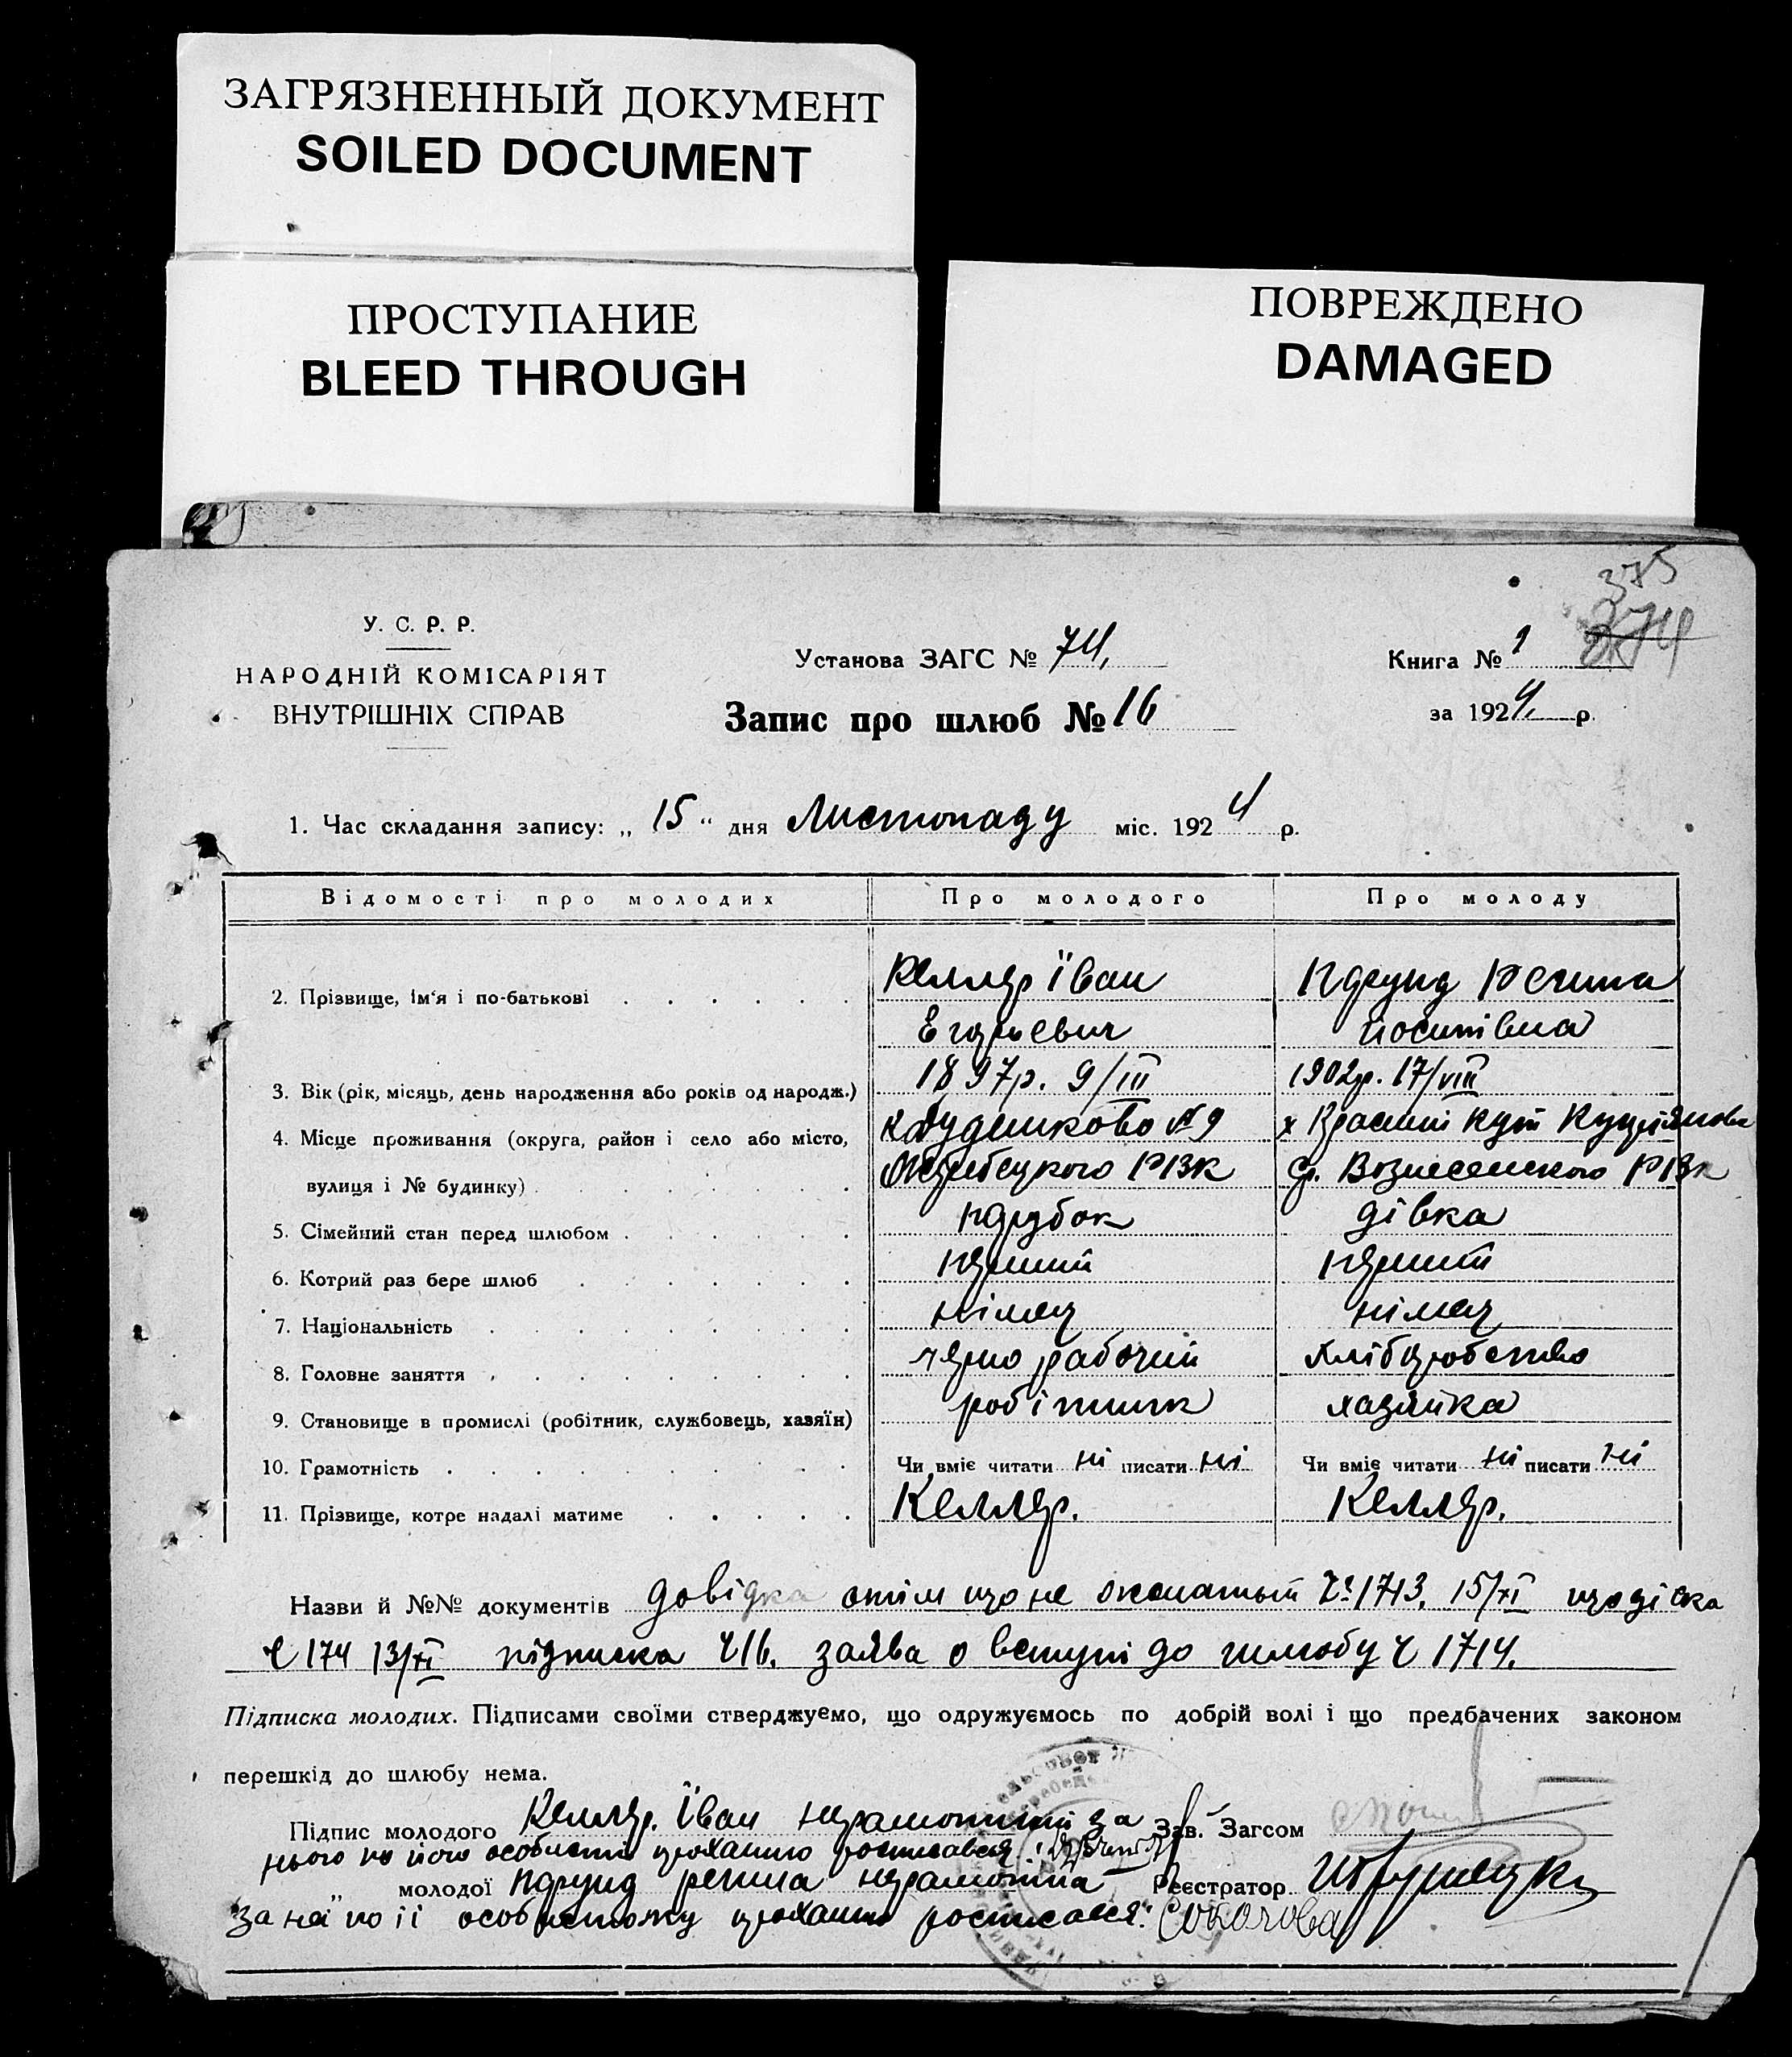 ЗАГРЯЗНЕННЫЙ ДОКУМЕНТ
SOILED DOCUMENT
ПРОСТУПАНИЕ
BLEED THROUGH
ПОВРЕЖДЕНО
DAMAGED
375
374
У. С. Р. Р.
НАРОДНІЙ КОМІСАРІЯТ
ВНУТРІШНІХ СПРАВ
Установа ЗАГС № 74.
Запис про шлюб № 16
Книга № 1
за 1924 р.
1. Час складання запису: „ 15 " дня Листопаду міс. 1924 р.
Відомості про молодих Про молодого Про молоду
2. Прізвище, ім'я і по-батькові Келлер Їван Регина
Егорьевич Йосипівна
3. Вік (рік, місяць, день народження або років од народж.) 1897р. 9/III 1902р. 17/VIII
4. Місце проживання (округа, район і село або місто, № 9 х Красний Кут
вулиця і № будинку) РВК Вознесенского РВК
5. Сімейний стан перед шлюбом парубок дівка
6. Котрий раз бере шлюб перший перший
7. Національність німец німец
8. Головне заняття черно рабочий хліборобство
9. Становище в промислі (робітник, службовець, хазяїн) робітник хазяйка
10. Грамотність Чи вміє читати ні писати ні Чи вміє читати ні писати ні
11. Прізвище, котре надалі матиме Келлер. Келлер.
Назви й №№ документів довідка отім що не 1713. 15/XI що дівка
Ч 174 13/XI підписка Ч 16. заява о вступі до шлюбу Ч 1714.
Підписка молодих. Підписами своїми стверджуємо, що одружуємось по добрій волі і що предбачених законом
перешкід до шлюбу нема.
Підпис молодого Келлер. Їван неграмотний за Зав. Загсом
нього по його особистій проханню росписався
„ молодої Регина неграмотна Реєстратор
за неї по її особистому проханню росписався. Соколова